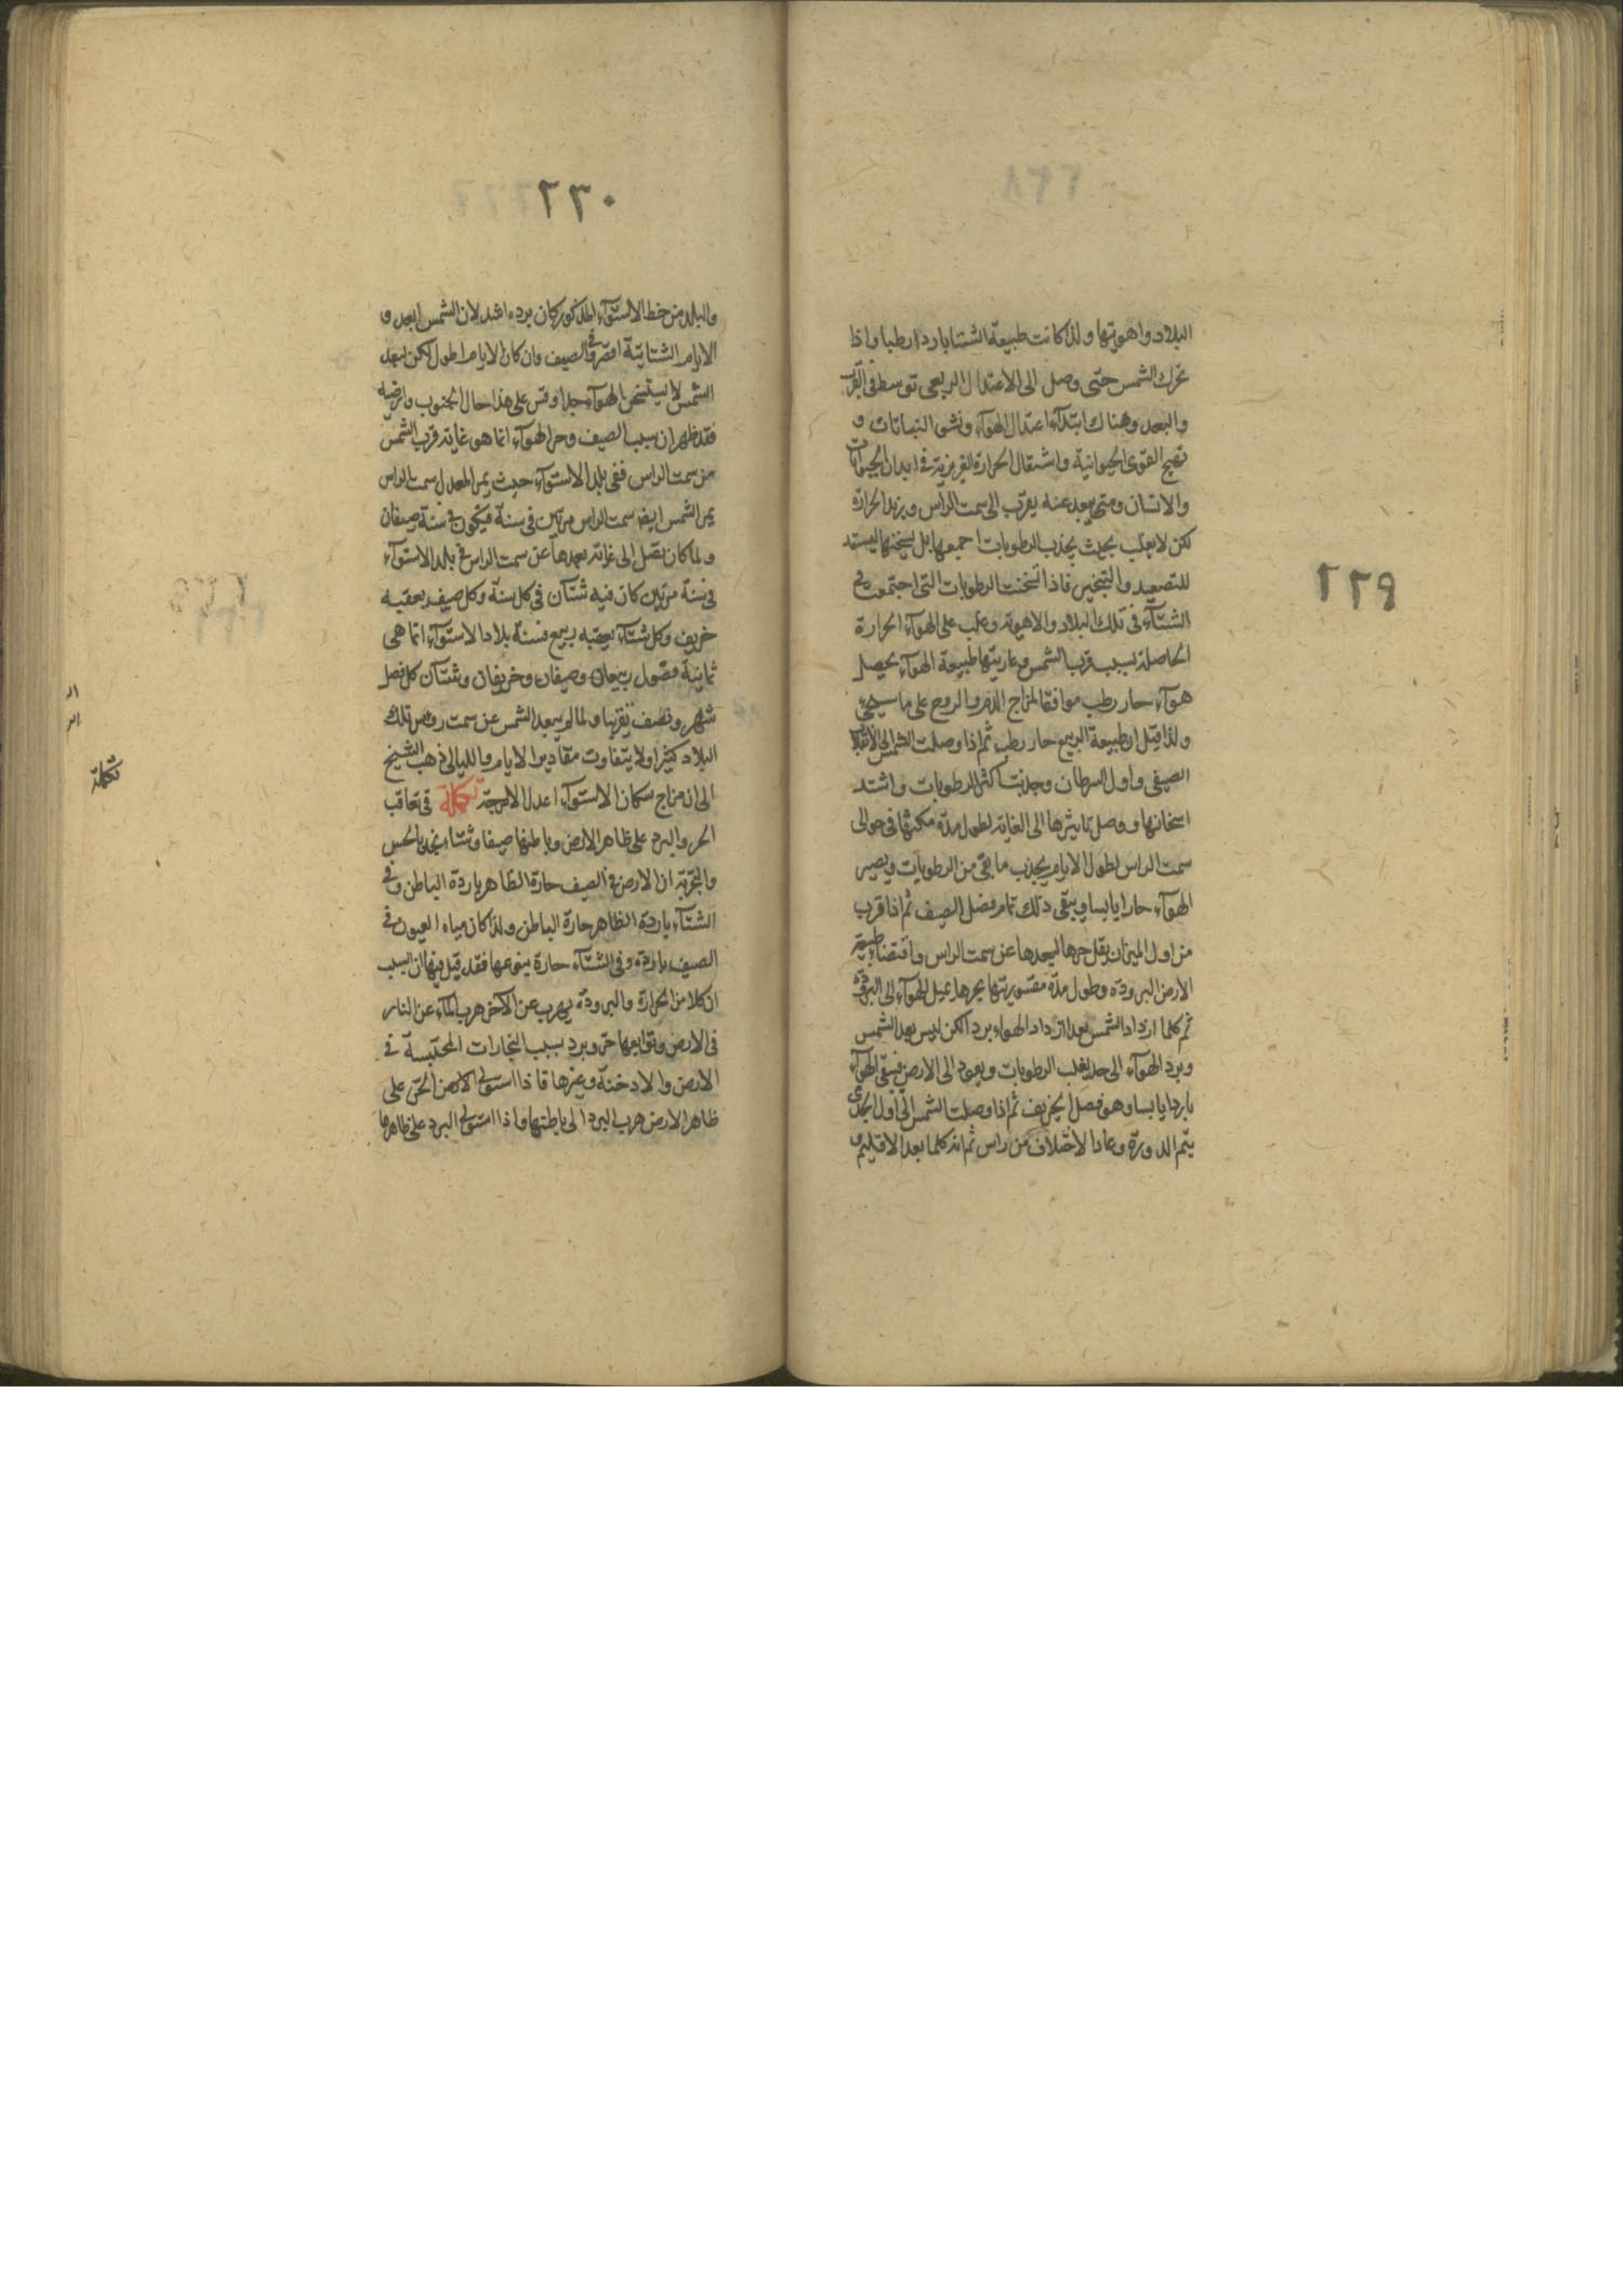 ٢٢٩
البلاد واهويتها ولذا كانت طبيعة الشتا باردا رطبا واذا
تحرك الشمس حتى وصل الى الاعتدال الربيعى توسط فى القرب
والبعد وهناك ابتداء اعتدال الهوآء ونشو النباتات و
تهيج القوى الحيوانية واشتعال الحرارة الغريزية فى ابدان الحيوانات
والانسان ومتى يبعد عنه يقرب الى سمت الراس ويزيد الحرارة
لكن لا يغلب بحيث يجذب الرطوبات اجمعها بل يسخنها ليستعد
للتصعيد والتبخير فاذا اسخنت الرطوبات التى اجتمعت فى
الشتآء فى تلك البلاد والاهوية وغلب على الهوآء الحرارة
الحاصلة بسبب قرب الشمس طبيعة الهوآء يحصل
هوآء حار رطب موافقا لمزاج الدم والروح على ما سيجئ
ولذا قيل ان طبيعة الربيع حار رطب ثم اذا وصلت الشمس الى الانقلاب
الصيفى واول السرطان وجذبت اكثر الرطوبات واشتد
اسخانها ووصل تاثيرها الى الغاية لطول مدة مكثها فى حوالى
سمت الراس لطول الايام يجذب ما بقى من الرطوبات ويصير
الهوآء حارا يابسا ويبقى ذلك تمام فصل الصيف ثم اذا قرب
من اول الميزان يقل حرها لبعدها عن سمت الراس واقتضاء طبيعة
الارض البرودة وطول مدة مقسوريتها بحرها يميل الهوآء الى البرودة
ثم كلما ازداد الشمس بعدا ازداد الهواء بردا لكن ليس بعد الشمس
وبرد الهوآء الى حد يغلب الرطوبات ويعود الى الارض فيبقى الهوآء
باردا يابسا وهو فصل الخريف ثم اذا وصلت الشمس الى اول الجدى
يتم الدورة وعاد الاختلاف من راس ثم انه كلما بعد الاقليم
٢٣٠
والبلد من خط الاستوآء المذكور كان برده اشد لان الشمس ابعد و
الايام الشتائية اقصر وفى الصيف وان كان الايام اطول لكن لبعد
الشمس لا يستسخن الهوآء جدا وقس على هذا حال الجنوب
فقد ظهر ان سبب الصيف وحر الهوآء انما هو غاية قرب الشمس
من سمت الراس ففى بلد الاستوآء حيث يمر المعدل بسمت الراس
يمر الشمس ايضا سمت الراس مرتين فى سنة فيكون فى سنة صيفان
ولما كان تصل الى غاية بعدها عن سمت الراس فى بلد الاستوآء
فى سنة مرتين كان فيه شتآن فى كل سنة وكل صيف يعقبه
خريف وكل شتآء يعقبه ربيع فسنة بلاد الاستوآء انما هى
ثمانية فصول ربيعان وصيفان وخريفان وشتآن كل فصل
شهر ونصف تقريبا ولما لم يبعد الشمس عن سمت رؤس تلك
البلاد كثيرا ولا يتفاوت مقادير الايام والليالى ذهب الشيخ
الى ان مزاج سكان الاستوآء اعدل الامزجة تكملة فى تعاقب
الحر والبرد على ظاهر الارض وباطنها صيفا وشتاء نجد بالحس
والتجربة ان الارض فى الصيف حارة الظاهر باردة الباطن وفى
الشتآء باردة الظاهر حارة الباطن ولذا كان مياه العيون فى
الصيف باردة وفى الشتآء حارة فقد قيل فيها ان السبب
ان كلا من الحرارة والبرودة يهرب عن الآخر هرب المآء عن النار
فى الارض وتوابعها حر وبرد بسبب البخارات المحتبسة فى
الارض والادخنة وغيرها فاذا استولى الحر على
ظاهر الارض هرب البرد الى باطنها واذا استولى البرد على ظاهرها
تكملة